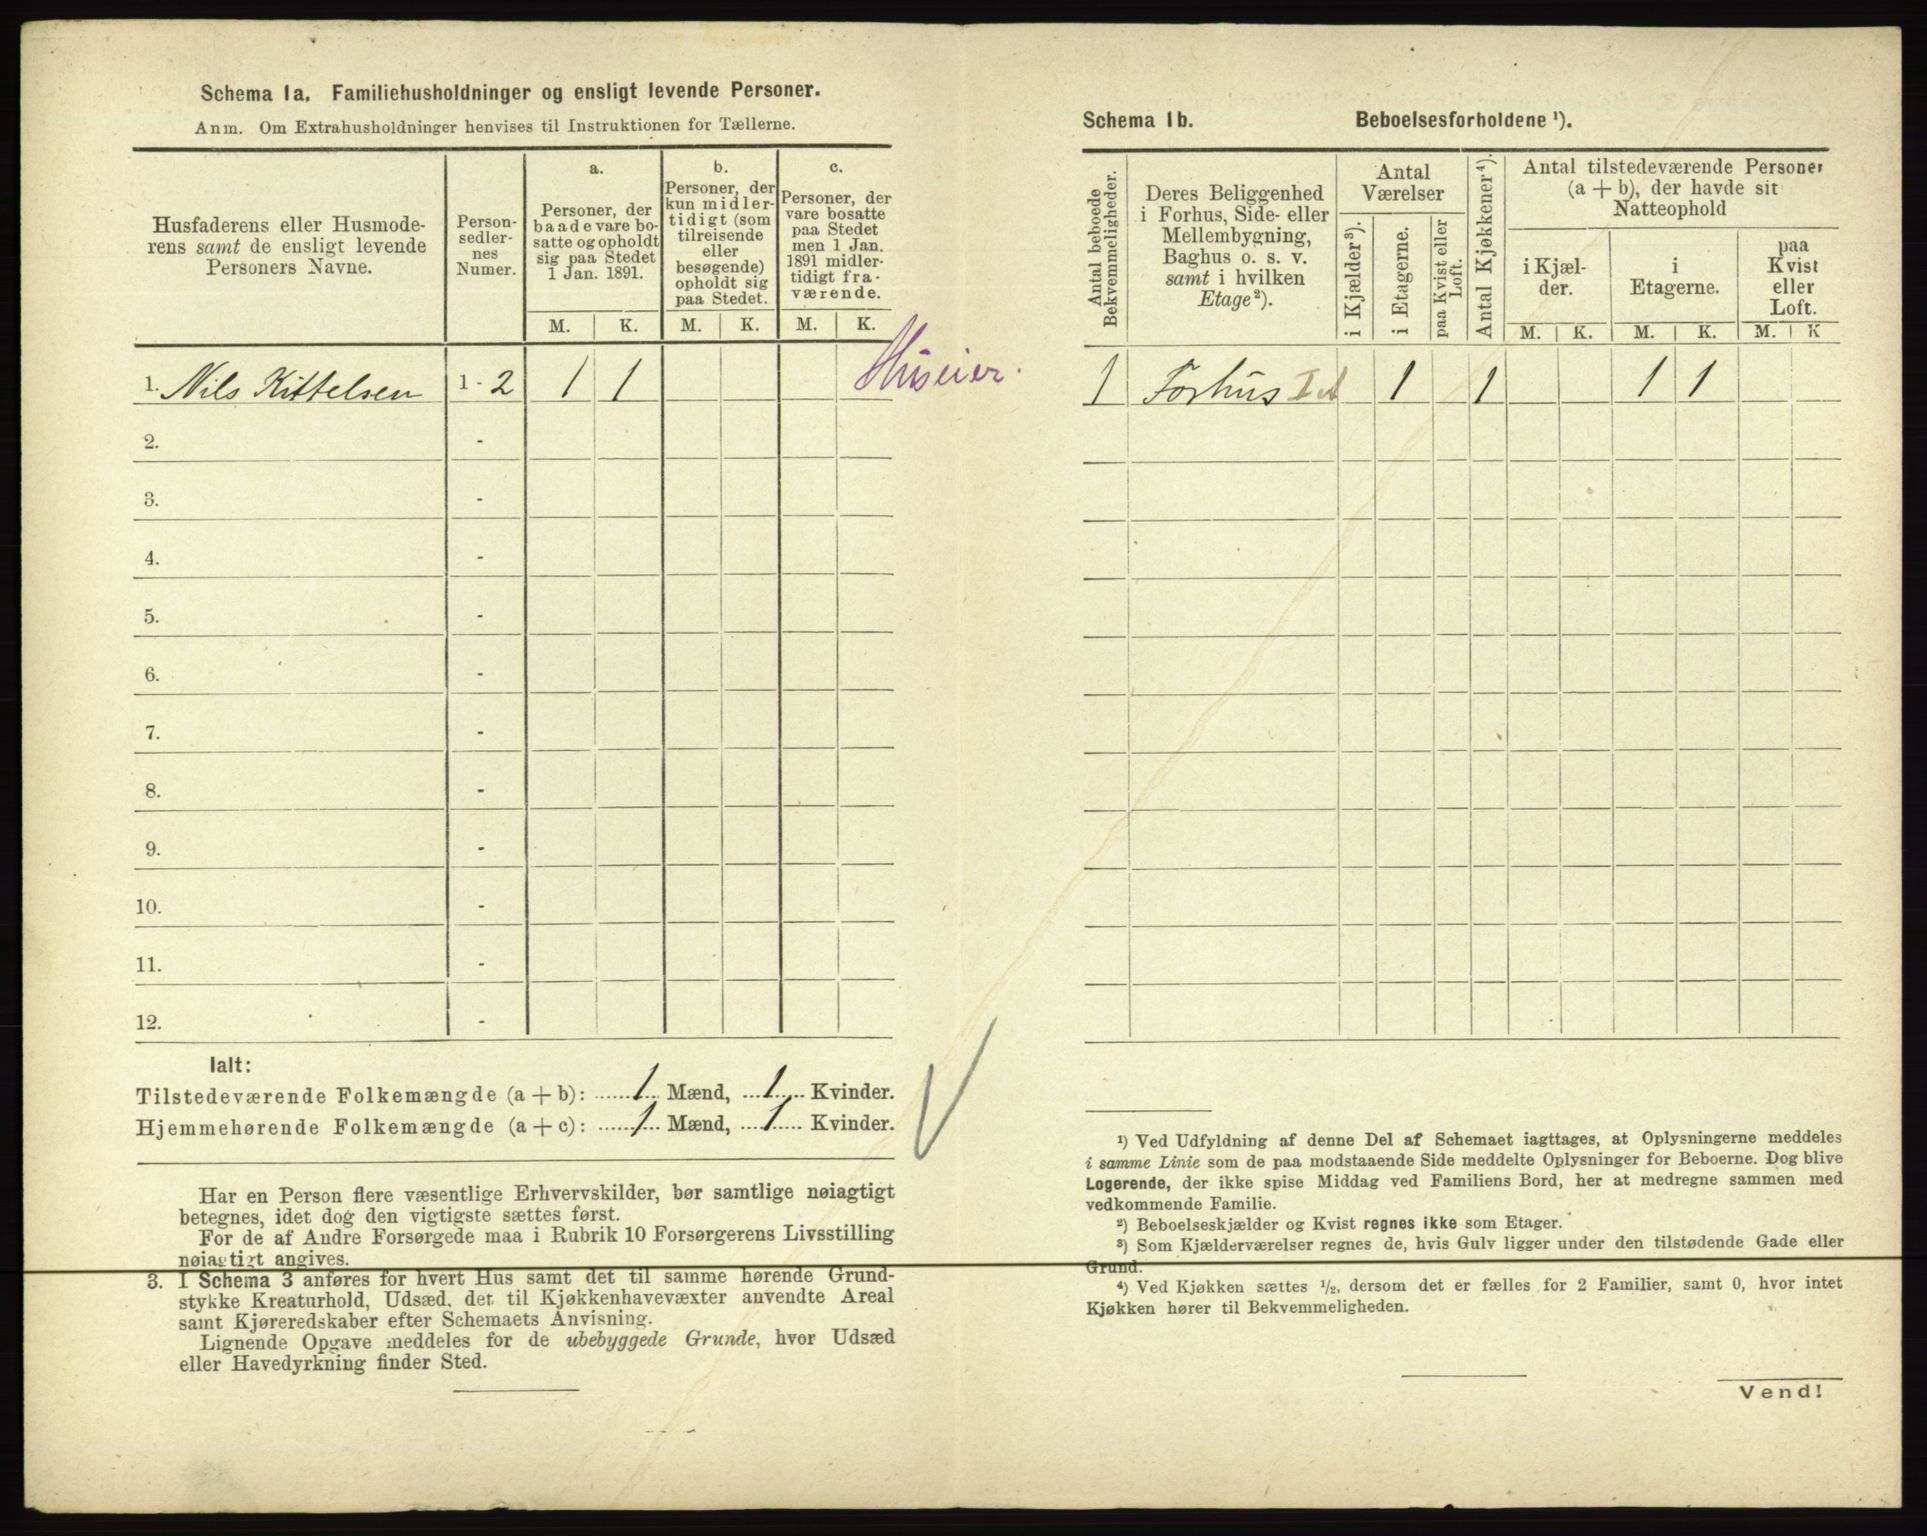 Schema 1a. Familiehusholdninger og ensligt levende Personer.
Anm. Om Extrahusholdninger henvises til Instruktionen for Tællerne.
Husfaderens eller Husmode-
rens samt de ensligt levende
Personers Navne.
Person-
sedler-
nes
Numer.
a.
Personer, der
baade vare bo-
satte og opholdt
sig paa Stedet
1 Jan. 1891.
b.
Personer, der
kun midler-
tidigt (som
tilreisende
eller
besøgende)
opholdt sig
paa Stedet.
c.
Personer, der
vare bosatte
paa Stedet
men 1 Jan.
1891 midler-
tidigt fra-
værende.
M. K. M. K. M. K.
1. Nils Kittelsen 1 - 2 1 1 Huseier.
2. -
3. -
4. -
5. -
6. -
7. -
8. -
9. -
10. -
11. -
12. -
Ialt:
Tilstedeværende Folkemængde (a + b): 1 Mænd, 1 Kvinder.
Hjemmehørende Folkemængde (a + c): 1 Mænd, 1 Kvinder.
Har en Person flere væsentlige Erhvervskilder, bør samtlige nøiagtigt
betegnes, idet dog den vigtigste sættes først.
For de af Andre Forsørgede maa i Rubrik 10 Forsørgerens Livsstilling
nøiagtigt angives.
3. I Schema 3 anføres for hvert Hus samt det til samme hørende Grund-
stykke Kreaturhold, Udsæd, det til Kjøkkenhavevæxter anvendte Areal
samt Kjøreredskaber efter Schemaets Anvisning.
Lignende Opgave meddeles for de ubebyggede Grunde, hvor Udsæd
eller Havedyrkning finder Sted.
Schema 1b. Beboelsesforholdene ¹).
Antal beboede
Bekvemmeligheder.
Deres Beliggenhed
i Forhus, Side- eller
Mellembygning,
Baghus o. s. v.
samt i hvilken
Etage²).
Antal
Værelser
i Kjælder³).
i Etagerne.
paa Kvist eller
Loft.
Antal Kjøkkener⁴).
Antal tilstedeværende Personer
(a + b), der havde sit
Natteophold
i Kjæl-
der.
i
Etagerne.
paa
Kvist
eller
Loft.
M. K. M. K. M. K
1 Forhus 1 1 1 1
¹) Ved Udfyldning af denne Del af Schemaet iagttages, at Oplysningerne meddeles
i samme Linie som de paa modstaaende Side meddelte Oplysninger for Beboerne. Dog blive
Logerende, der ikke spise Middag ved Familiens Bord, her at medregne sammen med
vedkommende Familie.
²) Beboelseskjælder og Kvist regnes ikke som Etager.
³) Som Kjælderværelser regnes de, hvis Gulv ligger under den tilstødende Gade eller
Grund.
⁴) Ved Kjøkken sættes ¹/₂, dersom det er fælles for 2 Familier, samt 0, hvor intet
Kjøkken hører til Bekvemmeligheden.
Vend!